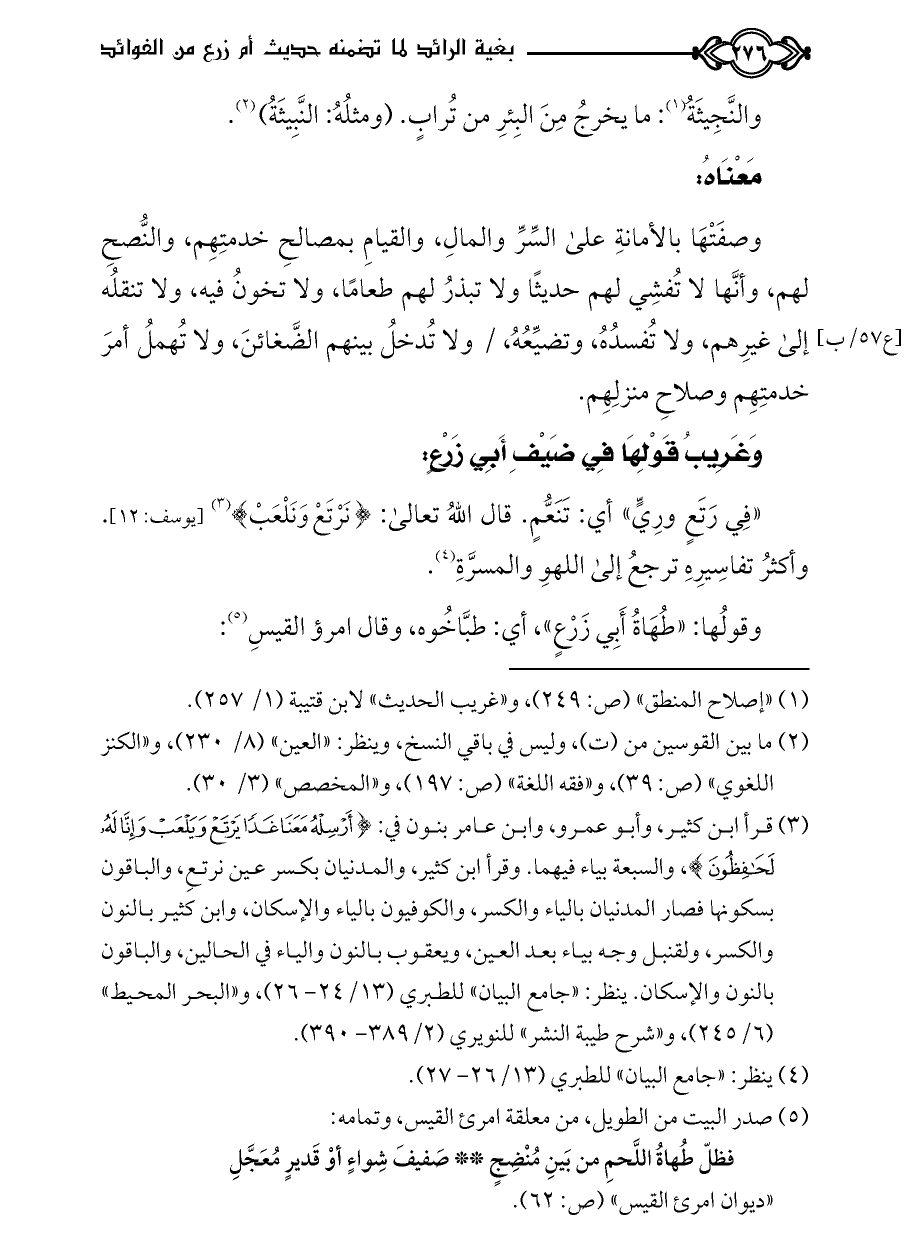 ٢٧٦ بغية الرائد لما تضمنه حديث أم زرع من الفوائد
والنَّجِيثَةُ(١): ما يخرجُ مِنَ البِئرِ من تُرابٍ. (ومثلُهُ: النَّبِيثَةُ)(٢).
مَعْنَاهُ:
وصفَتْهَا بالأمانةِ علىٰ السِّرِّ والمالِ، والقيامِ بمصالحِ خدمتِهِم، والنُّصحِ
لهم، وأنَّها لا تُفشِي لهم حديثًا ولا تبذرُ لهم طعامًا، ولا تخونُ فيه، ولا تنقلُه
إلىٰ غيرِهم، ولا تُفسدُهُ، وتضيِّعُهُ، / ولا تُدخلُ بينهم الضَّغائنَ، ولا تُهملُ أمرَ [ع٥٧/ ب]
خدمتِهِم وصلاحِ منزلِهِم.
وَغَرِيبُ قَوْلِهَا فِي ضَيْفِ أَبِي زَرْعٍ:
«فِي رَتَعٍ وريٍّ» أي: تَنَعُّمٍ. قال اللهُ تعالىٰ: ﴿نَرْتَعْ وَنَلْعَبْ﴾(٣) [يوسف: ١٢].
وأكثرُ تفاسِيرِهِ ترجعُ إلىٰ اللهوِ والمسرَّةِ(٤).
وقولُها: «طُهَاةُ أَبِي زَرْعٍ»، أي: طبَّاخُوه، وقال امرؤ القيسِ(٥):
(١) «إصلاح المنطق» (ص: ٢٤٩)، و«غريب الحديث» لابن قتيبة (١/ ٢٥٧).
(٢) ما بين القوسين من (ت)، وليس في باقي النسخ، وينظر: «العين» (٨/ ٢٣٠)، و«الكنز
اللغوي» (ص: ٣٩)، و«فقه اللغة» (ص: ١٩٧)، و«المخصص» (٣/ ٣٠).
(٣) قرأ ابن كثير، وأبو عمرو، وابن عامر بنون في: ﴿أَرْسِلْهُ مَعَنَا غَدًا يَرْتَعْ وَيَلْعَبْ وَإِنَّا لَهُۥ
لَحَـٰفِظُونَ﴾، والسبعة بياء فيهما. وقرأ ابن كثير، والمدنيان بكسر عين نرتعِ، والباقون
بسكونها فصار المدنيان بالياء والكسر، والكوفيون بالياء والإسكان، وابن كثير بالنون
والكسر، ولقنبل وجه بياء بعد العين، ويعقوب بالنون والياء في الحالين، والباقون
بالنون والإسكان. ينظر: «جامع البيان» للطبري (١٣/ ٢٤- ٢٦)، و«البحر المحيط»
(٦/ ٢٤٥)، و«شرح طيبة النشر» للنويري (٢/ ٣٨٩- ٣٩٠).
(٤) ينظر: «جامع البيان» للطبري (١٣/ ٢٦- ٢٧).
(٥) صدر البيت من الطويل، من معلقة امرئ القيس، وتمامه:
فظلّ طُهاةُ اللَّحمِ من بَينِ مُنْضِجٍ ** صَفيفَ شِواءٍ أوْ قَديرٍ مُعَجَّلِ
«ديوان امرئ القيس» (ص: ٦٢).